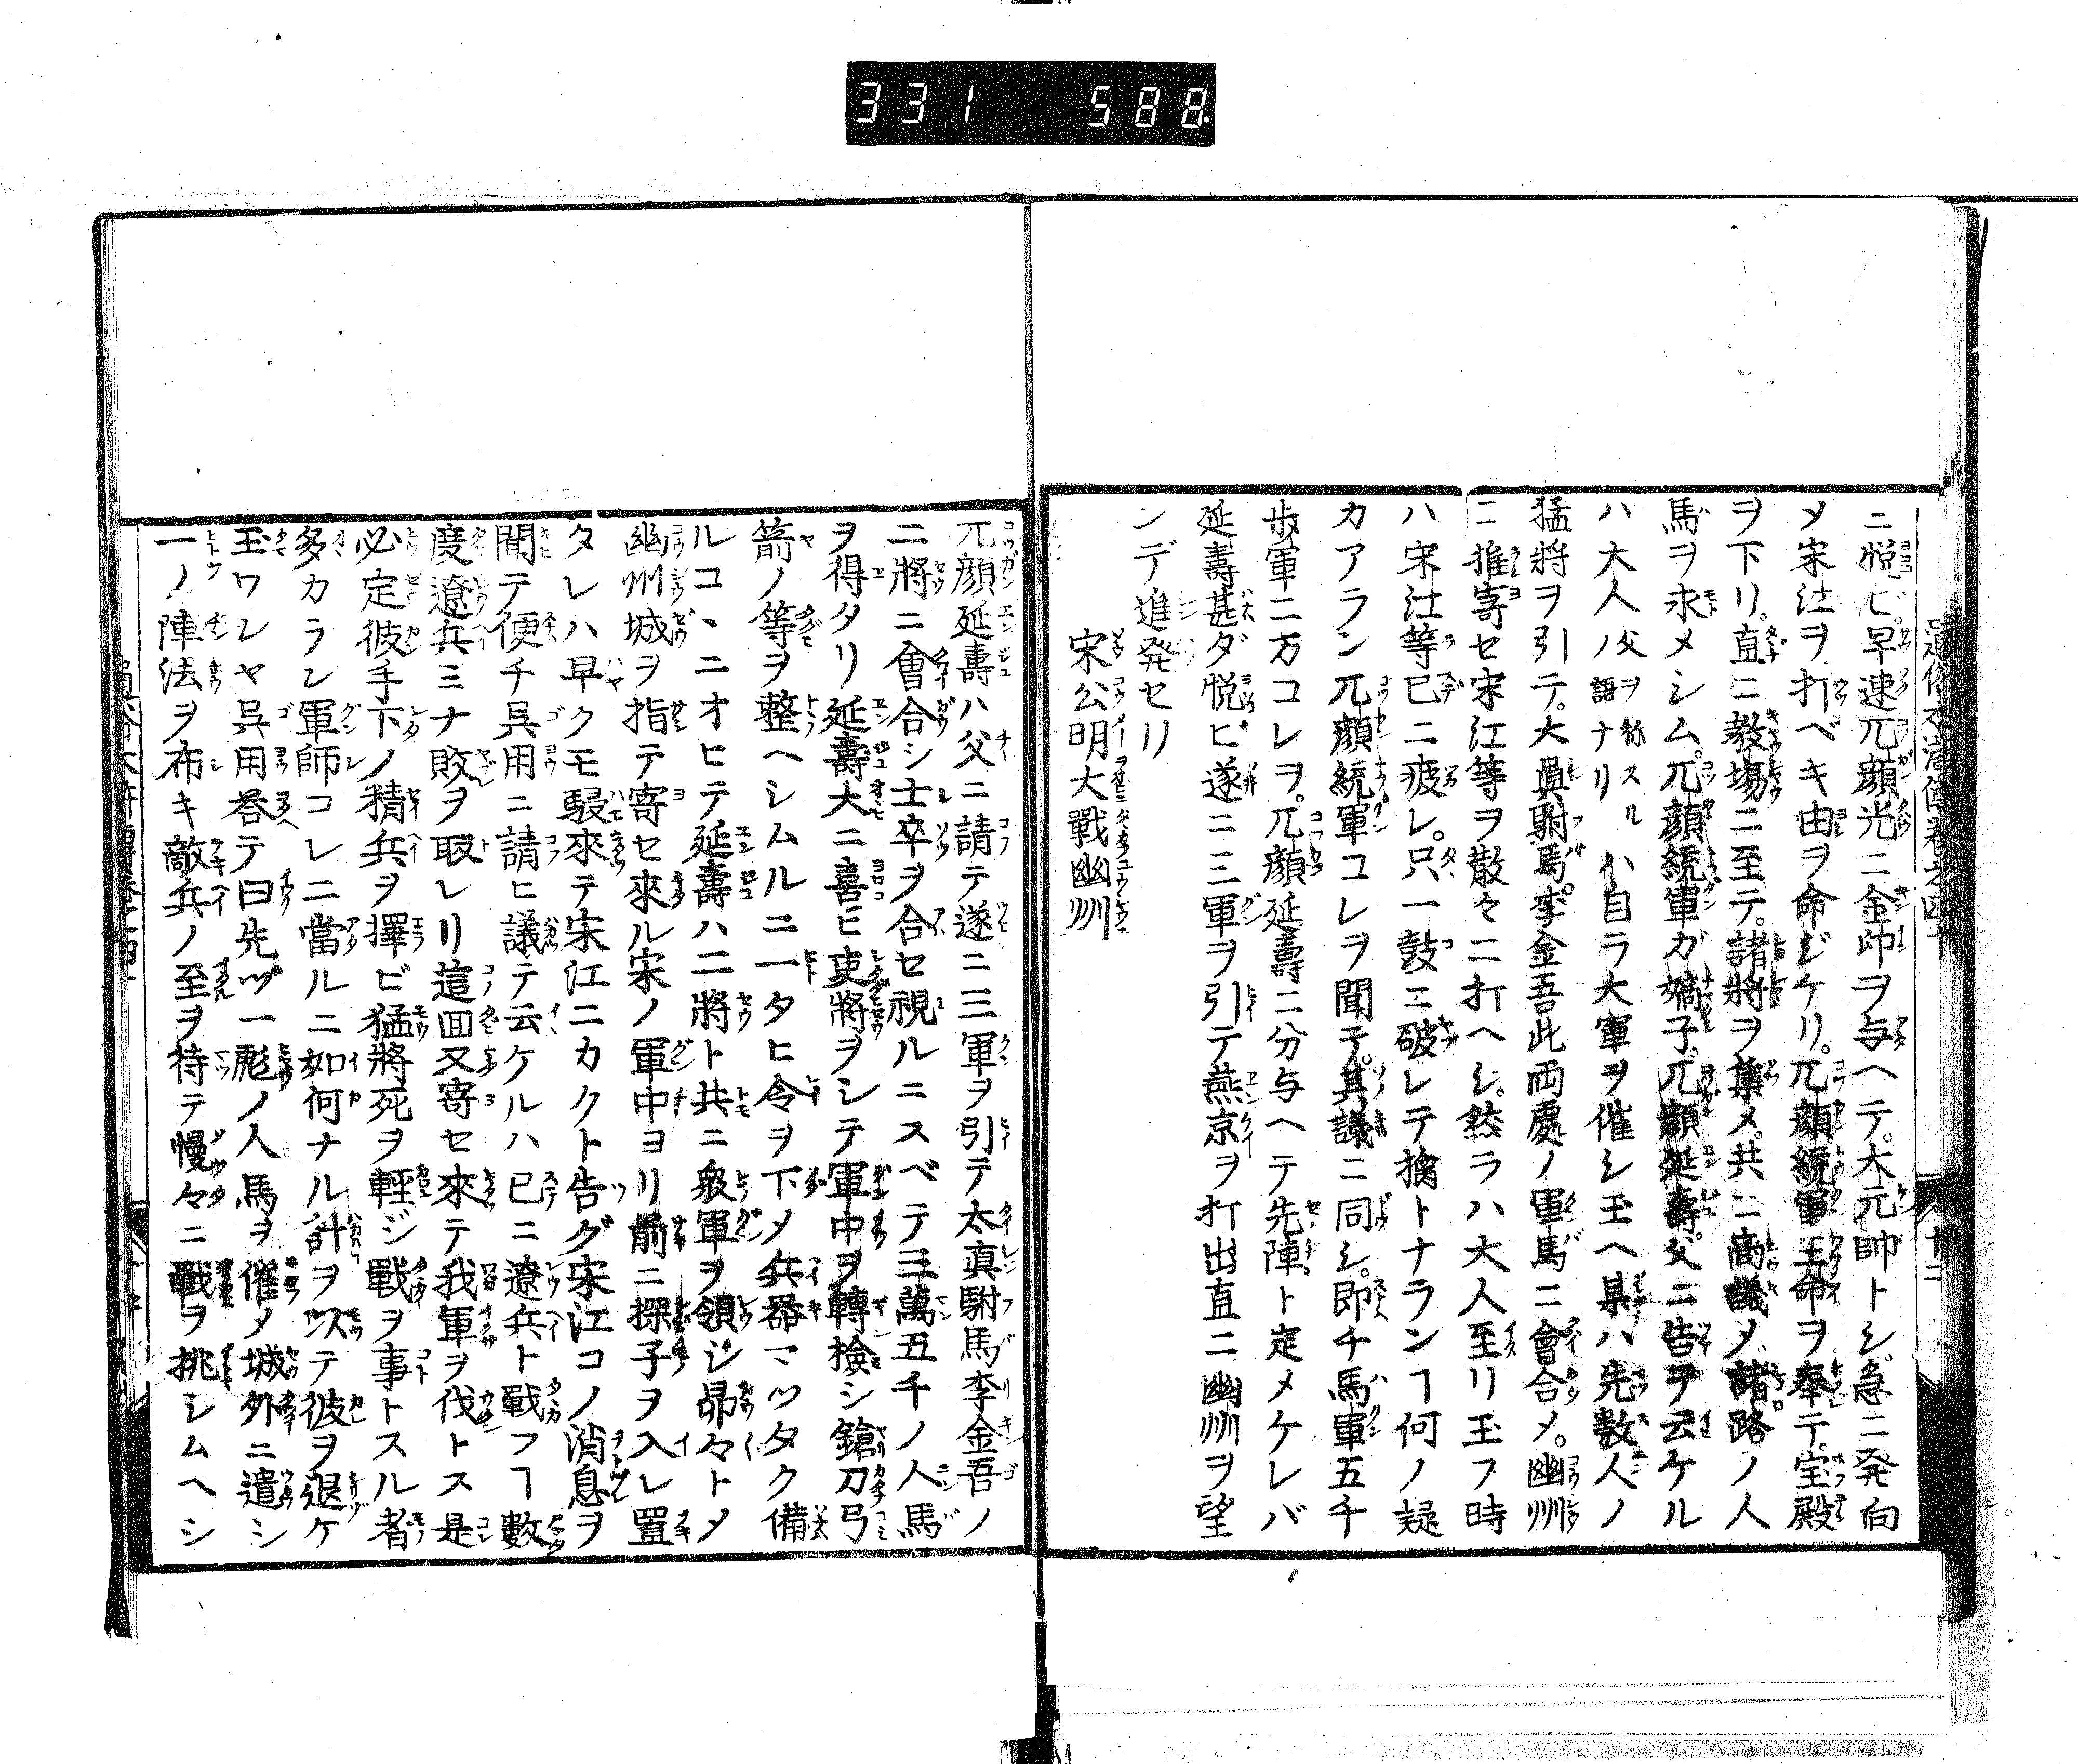 331 588
ニ悦ヒ。早速兀顔光ニ金印ヲ与ヘテ。大元帥トシ。急ニ発向
メ宋江ヲ打ベキ由ヲ命ジケリ。兀顔統軍王命ヲ奉テ。宝殿
ヲ下リ。直ニ教場ニ至テ。諸將ヲ集メ。共ニ商議メ。諸路ノ人
馬ヲ求メシム。兀顔統軍ガ嫡子。兀顔延壽父ニ告テ云ケル
ハ大人ノ父ヲ称スル語ナリハ自ラ大軍ヲ催シ玉ヘ某ハ先数人ノ
猛將ヲ引テ。大眞駙馬。李金吾此両處ノ軍馬ニ會合メ。幽州
ニ推寄セ宋江等ヲ散々ニ打ヘシ。然ラハ大人至リ玉フ時
ハ宋江等已ニ疲レ。只一鼓ニ破レテ擒トナランヿ何ノ疑
カアラン兀顔統軍コレヲ聞テ。其議ニ同シ。即チ馬軍五千
歩軍二万コレヲ。兀顔延壽ニ分与ヘテ先陣ト定メケレバ
延壽甚ダ悦ビ遂ニ三軍ヲ引テ燕京ヲ打出直ニ幽州ヲ望
ンデ進発セリ
宋公明大戰幽州
兀顔延壽ハ父ニ請テ遂ニ三軍ヲ引テ太真駙馬李金吾ノ
二將ニ會合シ士卒ヲ合セ視ルニスベテ三萬五千ノ人馬
ヲ得タリ延壽大ニ喜ヒ吏將ヲシテ軍中ヲ轉撿シ鎗刀弓
箭ノ等ヲ整ヘシムルニ一タヒ令ヲ下メ兵器マツタク備
ルコヽニオヒテ延壽ハ二將ト共ニ衆軍ヲ領シ昂々トメ
幽州城ヲ指テ寄セ來ル宋ノ軍中ヨリ前ニ探子ヲ入レ置
タレハ早クモ駸來テ宋江ニカクト告グ宋江コノ消息ヲ
聞テ便チ呉用ニ請ヒ議テ云ケルハ已ニ遼兵ト戰フヿ數
度遼兵ミナ敗ヲ取レリ這回又寄セ來テ我軍ヲ伐トス是
必定彼手下ノ精兵ヲ擇ビ猛將死ヲ輕ジ戰ヲ事トスル者
多カラン軍師コレニ當ルニ如何ナル計ヲ以テ彼ヲ退ケ
玉ワレヤ呉用答テ曰先ヅ一彪ノ人馬ヲ催メ城外ニ遣シ
一ノ陣法ヲ布キ敵兵ノ至ヲ待テ慢々ニ戰ヲ挑シムヘシ